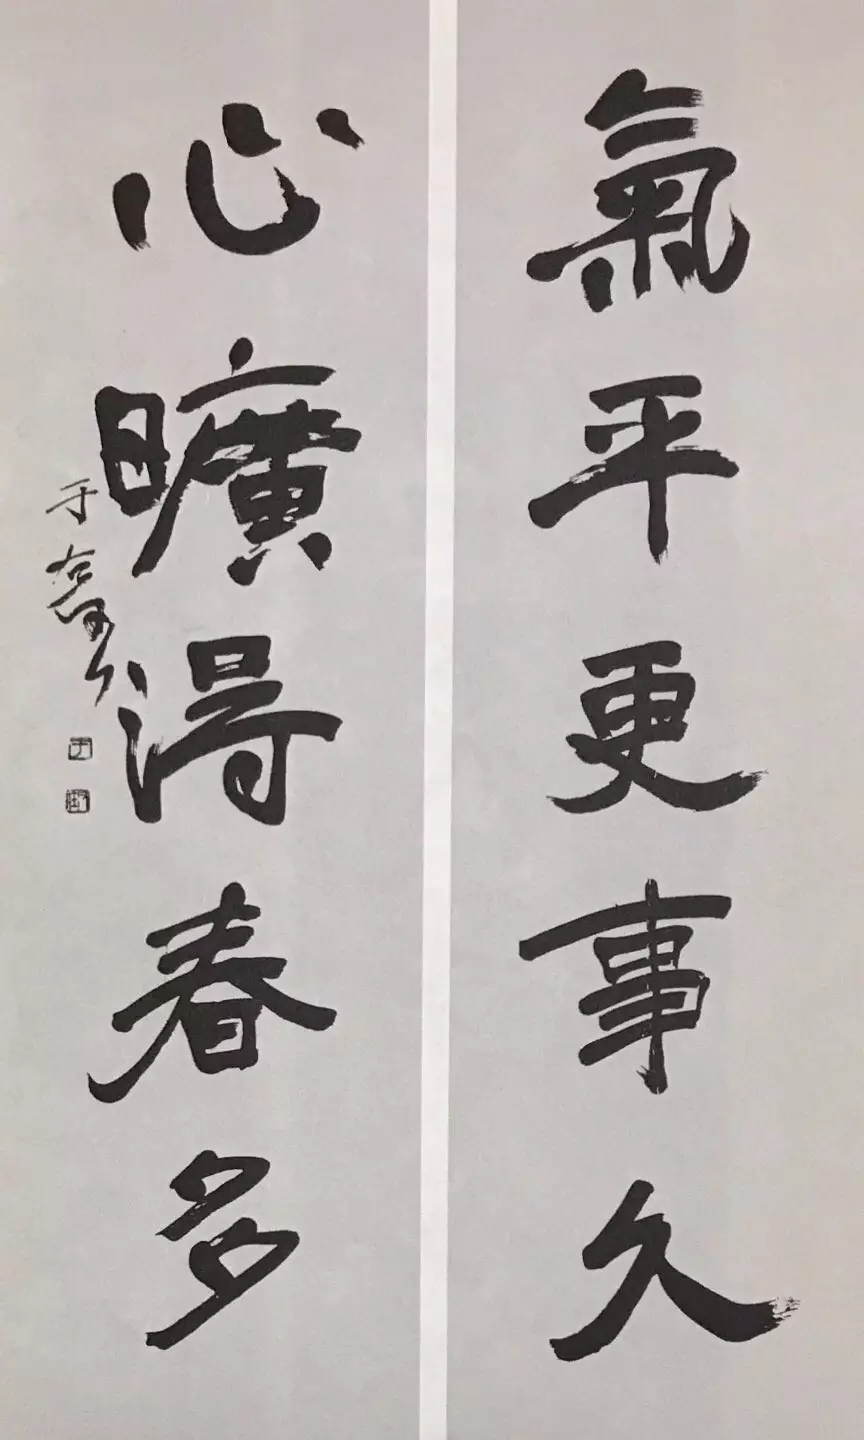 氣平更事久
心曠得春多
于